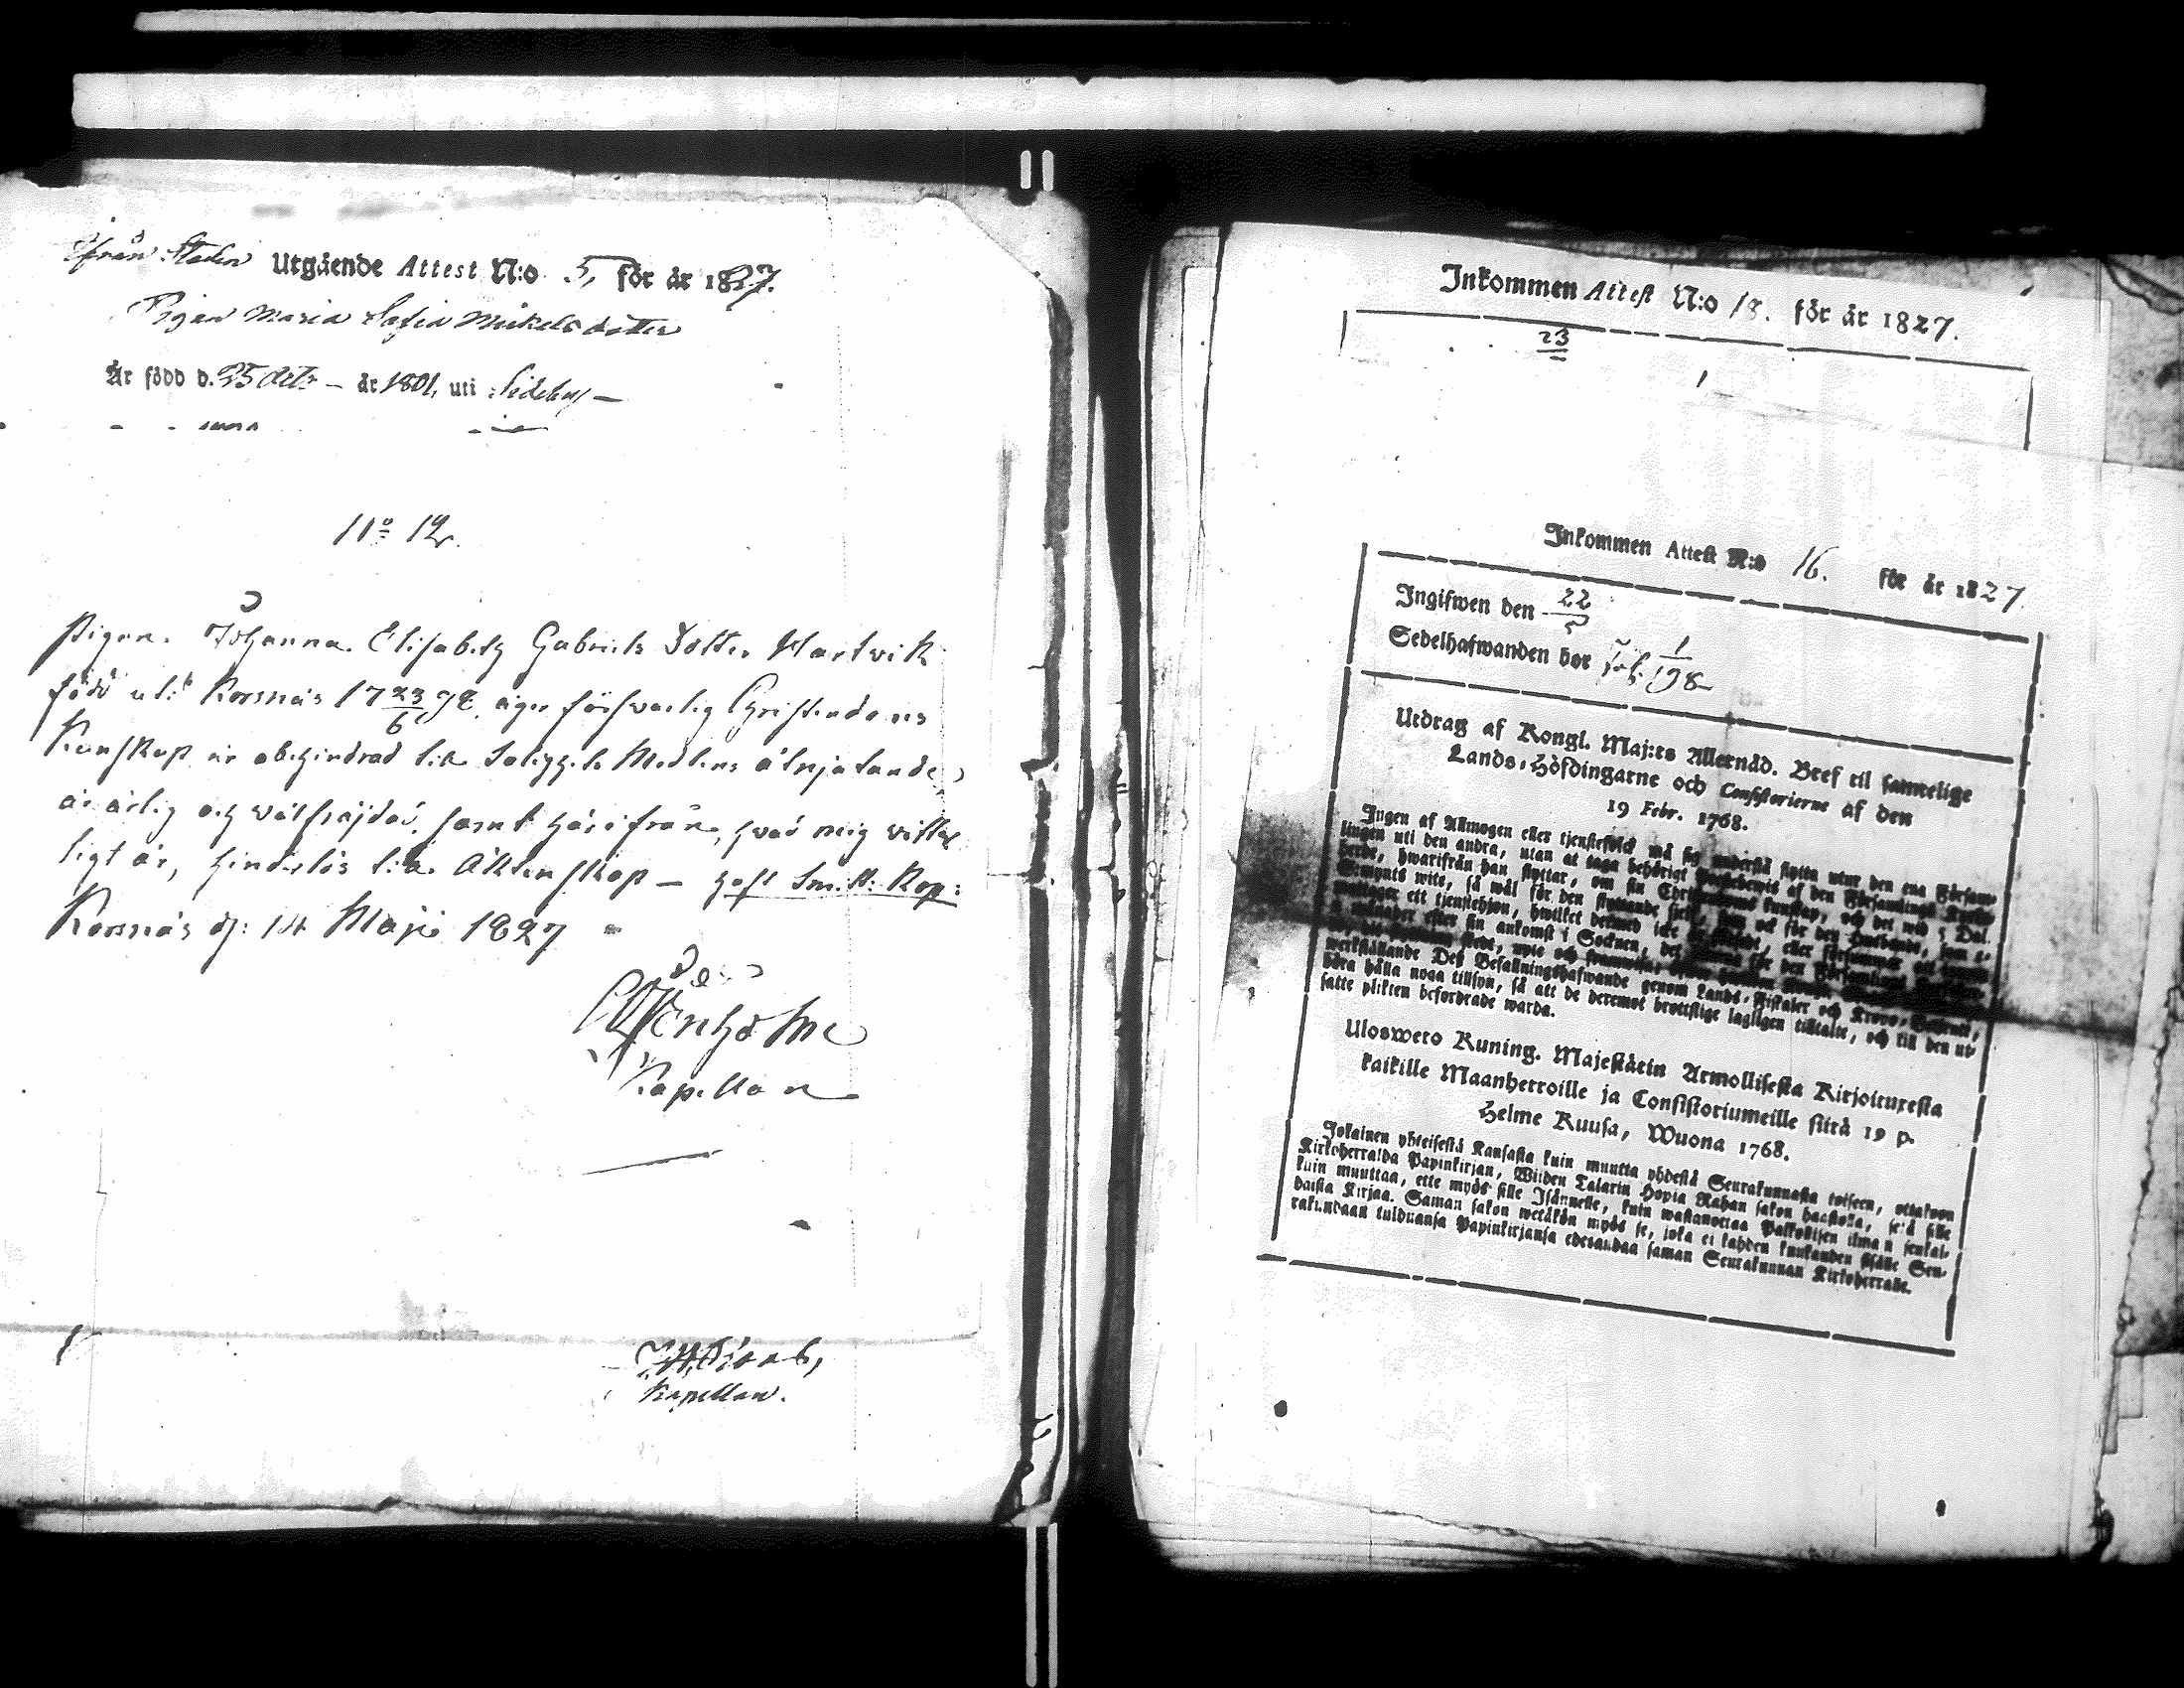 ifrån Staden Utgående Attest N:o 5, för år 1827.
Pigan Maria Sofia Mickelsdotter
Är född d. 25 Octr — år 1801, uti Sideby —
No 12.
Pigan Johanna Elisabeth Gabriels Dotter Hartvik
född uti Korsnäs 17 23/6 98, äger försvarlig Christendoms
Kunskap, är obehindrad till Saligh. Medlens åtnjutande,
är ärlig och välfräjdad, samt härifrån, hvad mig vitter
ligt är, hinderlös till Äktenskap — haft Sm. K: Kop:
Korsnäs d: 14 Maji 1827
Kapellan
Kapellan.
Inkommen Attest N:o 18. för år 1827.
23
Inkommen Attest N:o 16. för år 1827.
Ingifwen den 22/5
Sedelhafwanden bor 1/198
Utdrag af Kongl. Maj:ts Allernåd. Bref til samtelige
Lands-Höfdingarne och Consistorierne af den
19 Febr. 1768.
Ingen af Allmogen eller tjenstefolck må sig understå flytta utur den ena Församlingen
uti den andra, utan at taga behörigt Prestebewis af den Församlings Kyrkoherde,
hwarifrån han flyttar, om sin Christendoms kunskap, och det wid 5 Dal.
S:mynts wite, så wäl för den flyttande sjelf, som ock för den Husbonde, som emottager
ett tjenstehjon, hwilket dermed icke är försedt, eller försummar att innom
2 månader efter sin ankomst i Socknen, det
werkställande Des Befallningshafwande genom Lands-Fiskaler och Krono-Betjente,
böra hålla noga tillsyn, så att de deremot brottslige lagligen tilltalte, och till den utsatte
plikten befordrade warda.
Uloswero Kuning. Majestätin Armollisesta Kirjoituxesta
kaikille Maanherroille ja Consistoriumeille siitä 19 p.
Helme Kuusa, Wuona 1768.
Jokainen yhteisestä Kansasta kuin muutta yhdestä Seurakunnasta toiseen, ottakoon
Kirkoherralda Papinkirjan, Wiiden Talarin Hopia Rahan sakon haastolla, sekä sille
kuin muuttaa, ette myös sille Isännelle, kuin wastanottaa Palkollisen ilman senkaldaista
Kirjaa. Saman sakon wetäkön myös se, joka ei kahden kuukauden sisälle Seurakundaan
tulduansa Papinkirjansa edesandaa saman Seurakunnan Kirkoherralle.